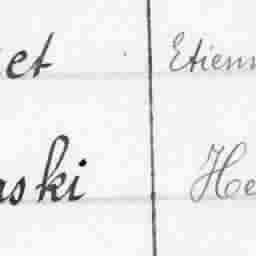 et Etienn
ski He